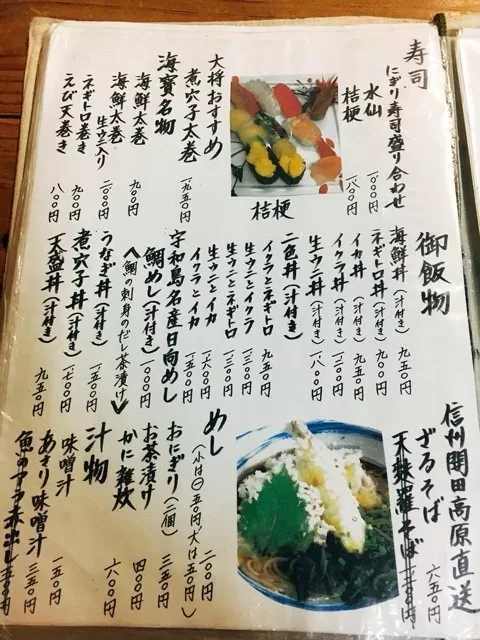 寿司
にぎり寿司盛り合わせ
水仙 一、〇〇〇円
桔梗 一、八〇〇円
桔梗
大将おすすめ
煮穴子太巻 一、九五〇円
海寶名物
海鮮太巻 九〇〇円
海鮮太巻 生ウニ入り 二、〇〇〇円
ネギトロ巻き 九〇〇円
えび天巻き 八〇〇円
御飯物
海鮮丼(汁付き) 九五〇円
ネギトロ丼(汁付き) 九〇〇円
イカ丼(汁付き) 九五〇円
イクラ丼(汁付き)
生ウニ丼(汁付き) 一、八〇〇円
二色丼(汁付き)
イクラとネギトロ 九五〇円
生ウニとイクラ
生ウニとネギトロ
生ウニとイカ 一、六〇〇円
イクラとイカ
宇和島名産日向めし
鯛めし(汁付き) 一、〇〇〇円
〈鯛の刺身のだし茶漬け〉
うなぎ丼(汁付き) 一、五〇〇円
煮穴子丼(汁付き) 一、七〇〇円
天盛丼(汁付き) 九五〇円
信州開田高原直送
ざるそば 六五〇円
天麩羅そば
めし 二〇〇円
(小は㊀五〇円、大は五〇円)
おにぎり(二個) 三五〇円
お茶漬け 四〇〇円
かに雑炊 六〇〇円
汁物
味噌汁 一五〇円
あさり味噌汁 三五〇円
魚のアラ赤出し 五五〇円